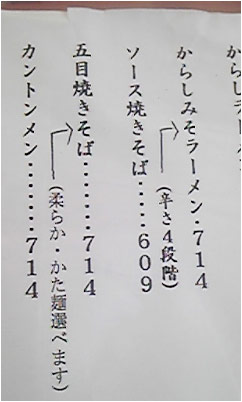 からしラーメ
からしみそラーメン・714
(辛さ4段階)
ソース焼きそば‥‥‥609
五目焼きそば‥‥‥‥714
(柔らか・かた麺選べます)
カントンメン‥‥‥‥714